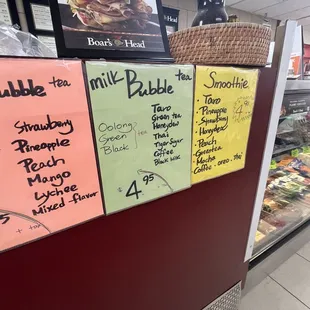 Boar's Head
ubble tea
Strawberry
Pineapple
Peach
Mango
Lychee
Mixed flavor
milk Bubble tea
Oolong
Green
Black
tea
Taro
Green tea
Honeydew
Thai
Tiger Sugar
Coffee
Black milk
4.95
+ tax
Smoothie
Taro
Pineapple
Strawberry
Honeydew
Peach
Green tea
Mocha
Coffee
OREO